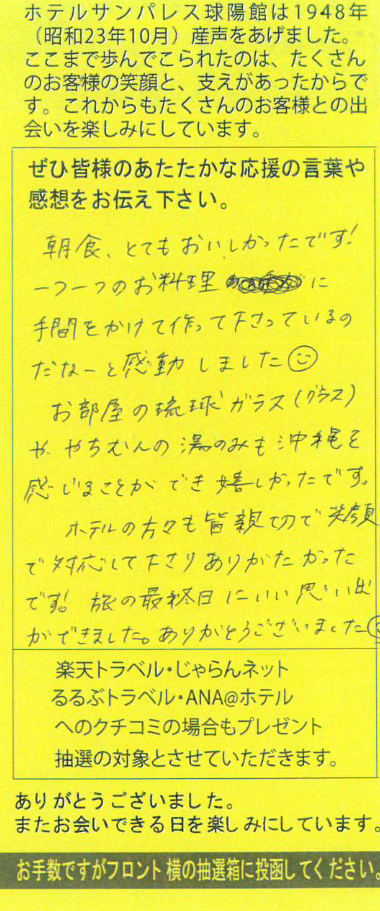 ホテルサンパレス球陽館は1948年
（昭和23年10月）産声をあげました。
ここまで歩んでこられたのは、たくさん
のお客様の笑顔と、支えがあったからで
す。これからもたくさんのお客様との出
会いを楽しみにしています。
ぜひ皆様のあたたかな応援の言葉や
感想をお伝え下さい。
朝食、とてもおいしかったです!
一つ一つのお料理 に
手間をかけて作って下さっているの
だなーと感動しました☺
お部屋の琉球ガラス(グラス)
や、やちむんの湯のみも沖縄を
感じることができ嬉しかったです。
ホテルの方々も皆親切で笑顔
で対応して下さりありがたかった
です! 旅の最終日にいい思い出
ができました。ありがとうございました☺
楽天トラベル・じゃらんネット
るるぶトラベル・ANA@ホテル
へのクチコミの場合もプレゼント
抽選の対象とさせていただきます。
ありがとうございました。
またお会いできる日を楽しみにしています。
お手数ですがフロント横の抽選箱に投函してください。